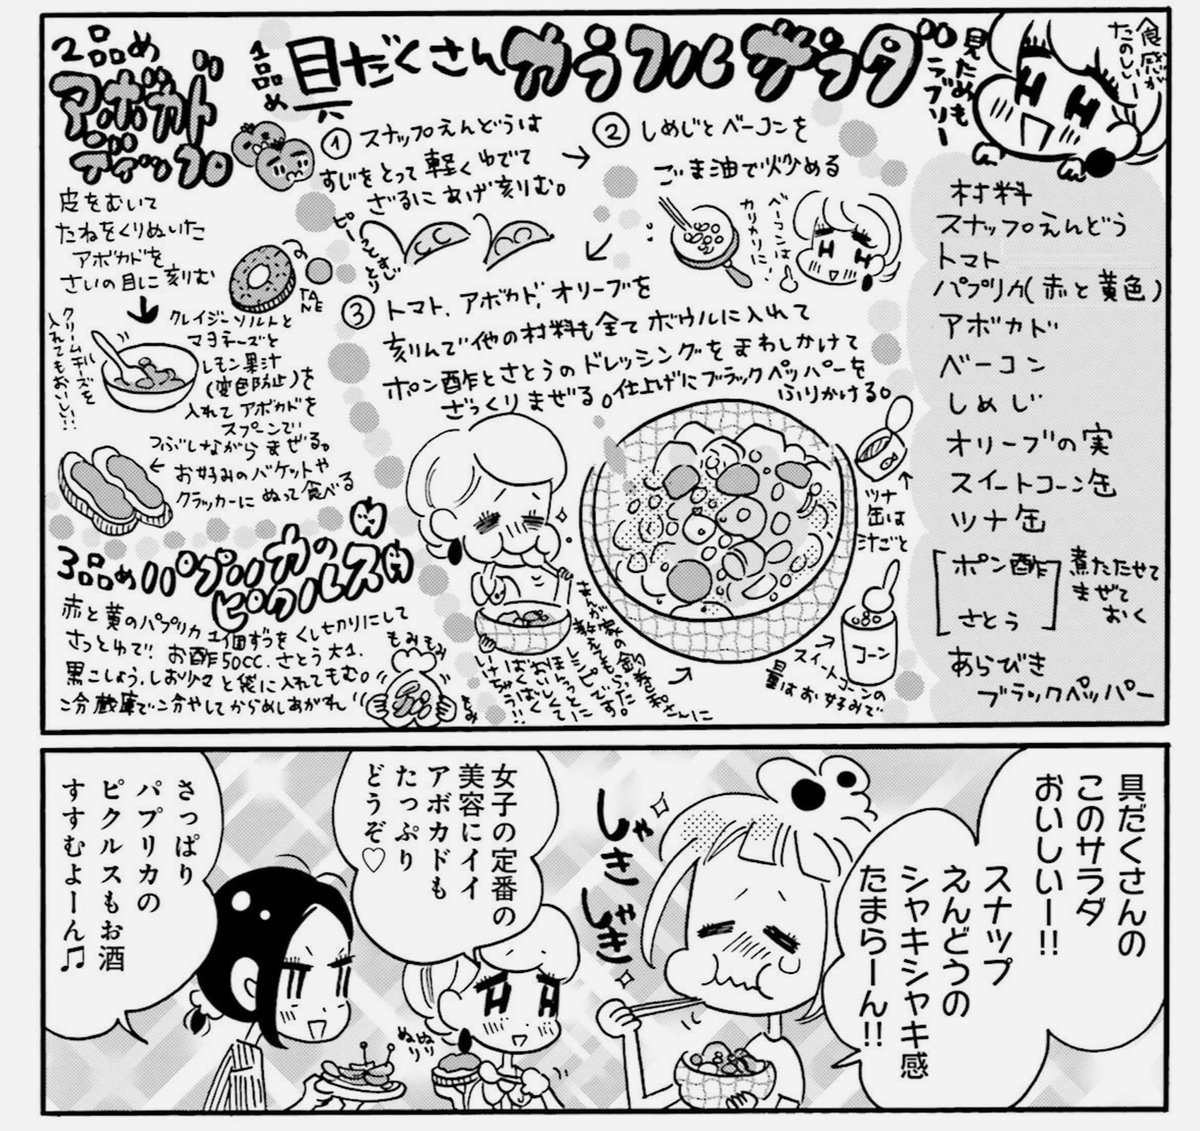 食感が
たのしいー
見ためも
ラブリー
1品め
具だくさんカラフルサラダ
① スナップえんどうは
すじをとって軽くゆでて
ざるにあげ刻りむ。
ピーッとすじとり
② しめじとベーコンを
ごま油で火炒める
ベーコンは
カリカリに!
③ トマト、アボカド、オリーブを
刻んで他の材料も全てボウルに入れて
ポン酢とさとうのドレッシングをまわしかけて
ざっくりまぜる。仕上げにブラックペッパーを
ふりかける。
ツナ
缶は
汁ごと
スイートコーンの
量はお好みで
コーン
材料
スナップえんどう
トマト
パプリカ(赤と黄色)
アボカド
ベーコン
しめじ
オリーブの実
スイートコーン缶
ツナ缶
ポン酢
さとう
煮たたせて
まぜて
おく
あらびき
ブラックペッパー
2品め
アボカド
ディップ
皮をむいて
たねをくりぬいた
アボカドを
さいの目に刻りむ
TANE
クレイジーソルトと
マヨネーズと
レモン果汁
(変色防止)を
入れてアボカドを
スプーンで
つぶしながらまぜる。
お好みのバケットや
クラッカーにぬって食べる
クリームチーズを
入れてもおいしい!!
3品め パプリカの
ピクルス
赤と黄のパプリカ1個ずつをくし切りにして
さっとゆで、お酢50cc、さとう大1、
黒こしょう、しお少々と袋に入れてもむ。
冷蔵庫で冷やしてからめしあがれ
もみもみ
もみ
具だくさんの
このサラダ
おいしいー!!
スナップ
えんどうの
シャキシャキ感
たまらーん!!
しゃき
しゃき
女子の定番の
美容にイイ
アボカドも
たっぷり
どうぞ♡
ぬり
ぬり
さっぱり
パプリカの
ピクルスもお酒
すすむよーん♫